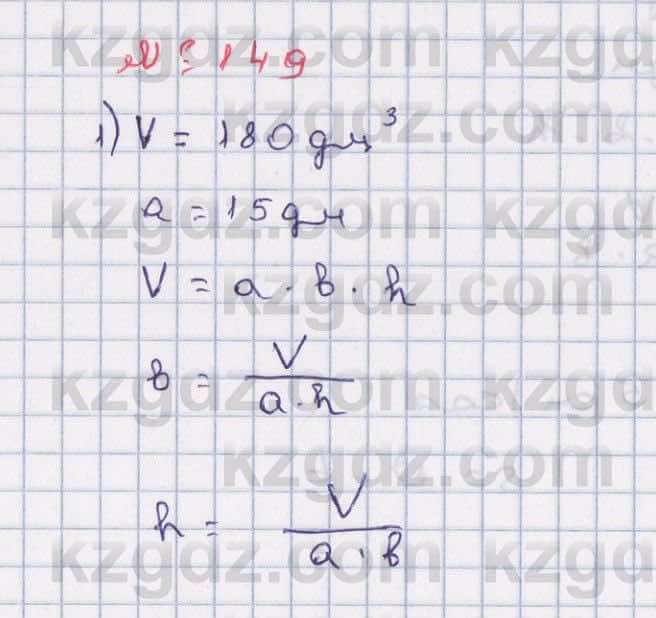 № 149
1) V = 180 дм³
a = 15 дм
V = a · b · h
b = V / (a · h)
h = V / (a · b)
kzgdz.com kzgdz.com
kzgdz.com
kzgdz.com kzgdz.com
kzgdz.com
kzgdz.com kzgdz.com
kzgdz.com
kzgdz.com kzgdz.com